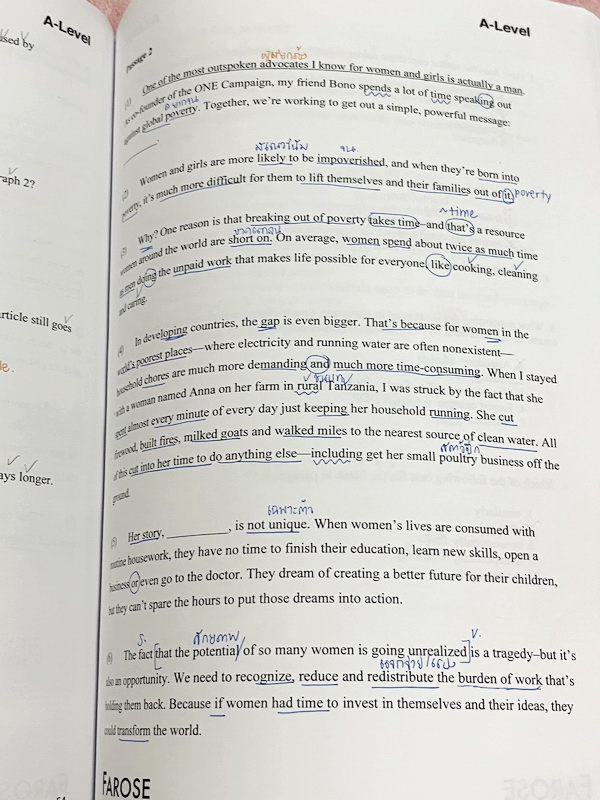 A-Level
A-Level
used by
raph 2?
rticle still goes
ays longer.
Passage 2
ผู้สนับสนุน
(1) One of the most outspoken advocates I know for women and girls is actually a man.
As co-founder of the ONE Campaign, my friend Bono spends a lot of time speaking out
ยากจน
against global poverty. Together, we're working to get out a simple, powerful message:
________.
มีแนวโน้ม จน
(2) Women and girls are more likely to be impoverished, and when they're born into
poverty, it's much more difficult for them to lift themselves and their families out of it. poverty
~time
(3) Why? One reason is that breaking out of poverty takes time–and that's a resource
ขาดแคลน
women around the world are short on. On average, women spend about twice as much time
as men doing the unpaid work that makes life possible for everyone, like cooking, cleaning
and caring.
(4) In developing countries, the gap is even bigger. That's because for women in the
world's poorest places—where electricity and running water are often nonexistent—
household chores are much more demanding and much more time-consuming. When I stayed
ชนบท
with a woman named Anna on her farm in rural Tanzania, I was struck by the fact that she
spent almost every minute of every day just keeping her household running. She cut
firewood, built fires, milked goats and walked miles to the nearest source of clean water. All
สัตว์ปีก
of this cut into her time to do anything else—including get her small poultry business off the
ground.
เฉพาะตัว
(5) Her story, __________, is not unique. When women's lives are consumed with
routine housework, they have no time to finish their education, learn new skills, open a
business or even go to the doctor. They dream of creating a better future for their children,
but they can't spare the hours to put those dreams into action.
S. ศักยภาพ V.
(6) The fact [that the potential of so many women is going unrealized] is a tragedy–but it's
แจกจ่าย/แบ่ง
also an opportunity. We need to recognize, reduce and redistribute the burden of work that's
holding them back. Because if women had time to invest in themselves and their ideas, they
could transform the world.
FAROSE